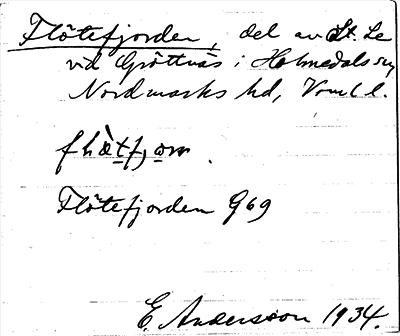 Flötefjorden, del av St. Le
vid Gröttnäs i Holmedals sn,
Nordmarks hd, Vrml l.
Flötefjorden G69
E. Andersson 1934.